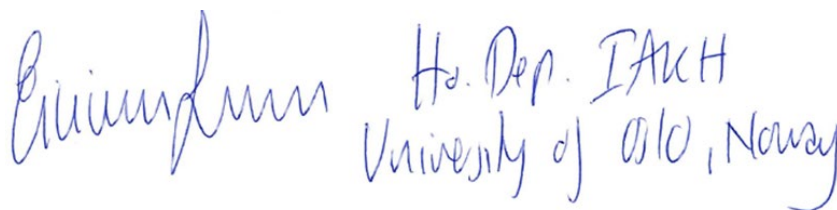 Ho. Dep. IAKH
University of Oslo, Norway